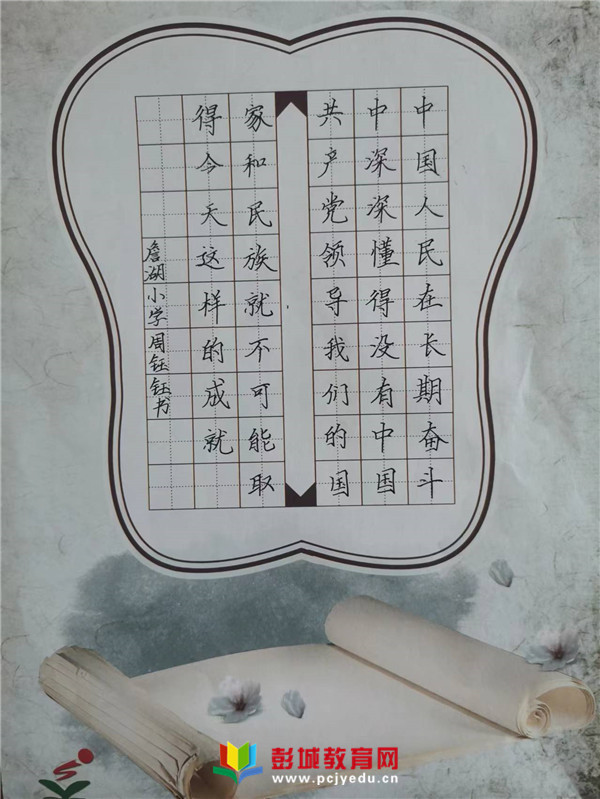 中国人民在长期奋斗
中深深懂得没有中国
共产党领导我们的国
家和民族就不可能取
得今天这样的成就
詹湖小学周钰钰书
彭城教育网
www.pcjyedu.cn